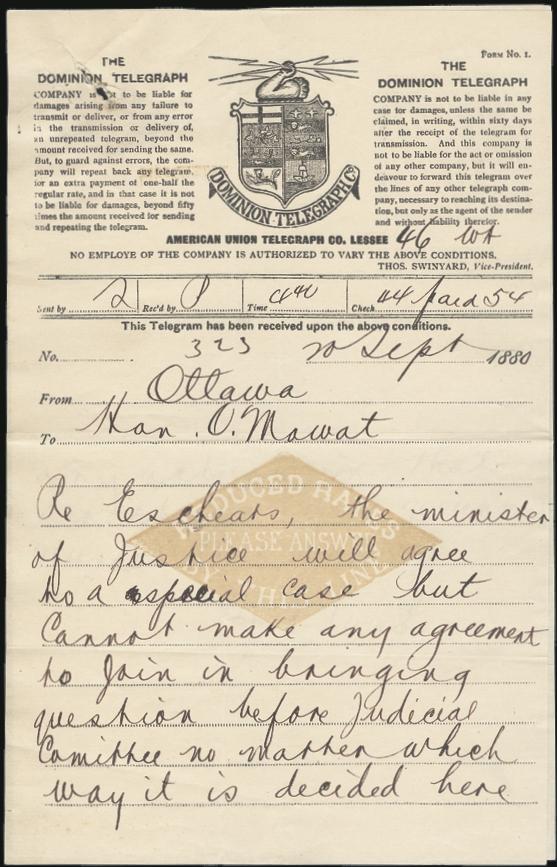 Form No. 1.
THE
DOMINION TELEGRAPH
COMPANY is not to be liable for
damages arising from any failure to
transmit or deliver, or from any error
in the transmission or delivery of,
an unrepeated telegram, beyond the
amount received for sending the same.
But, to guard against errors, the com-
pany will repeat back any telegram,
for an extra payment of one-half the
regular rate, and in that case it is not
to be liable for damages, beyond fifty
times the amount received for sending
and repeating the telegram.
DOMINION TELEGRAPH Co.
THE
DOMINION TELEGRAPH
COMPANY is not to be liable in any
case for damages, unless the same be
claimed, in writing, within sixty days
after the receipt of the telegram for
transmission. And this company is
not to be liable for the act or omission
of any other company, but it will en-
deavour to forward this telegram over
the lines of any other telegraph com-
pany, necessary to reaching its destina-
tion, but only as the agent of the sender
and without liability therefor.
AMERICAN UNION TELEGRAPH CO. LESSEE 46
NO EMPLOYE OF THE COMPANY IS AUTHORIZED TO VARY THE ABOVE CONDITIONS.
THOS. SWINYARD, Vice-President.
Sent by 2 Rec'd by P Time 440 Check 44 paid 54
This Telegram has been received upon the above conditions.
No. 323 20 Sept 1880
From Ottawa
To Hon. O. Mowat
REDUCED RATES
PLEASE ANSWER
BY THIS LINE
Re Escheats, the minister
of Justice will agree
to a special case but
Cannot make any agreement
to Join in bringing
question before Judicial
Comittee no matter which
way it is decided here